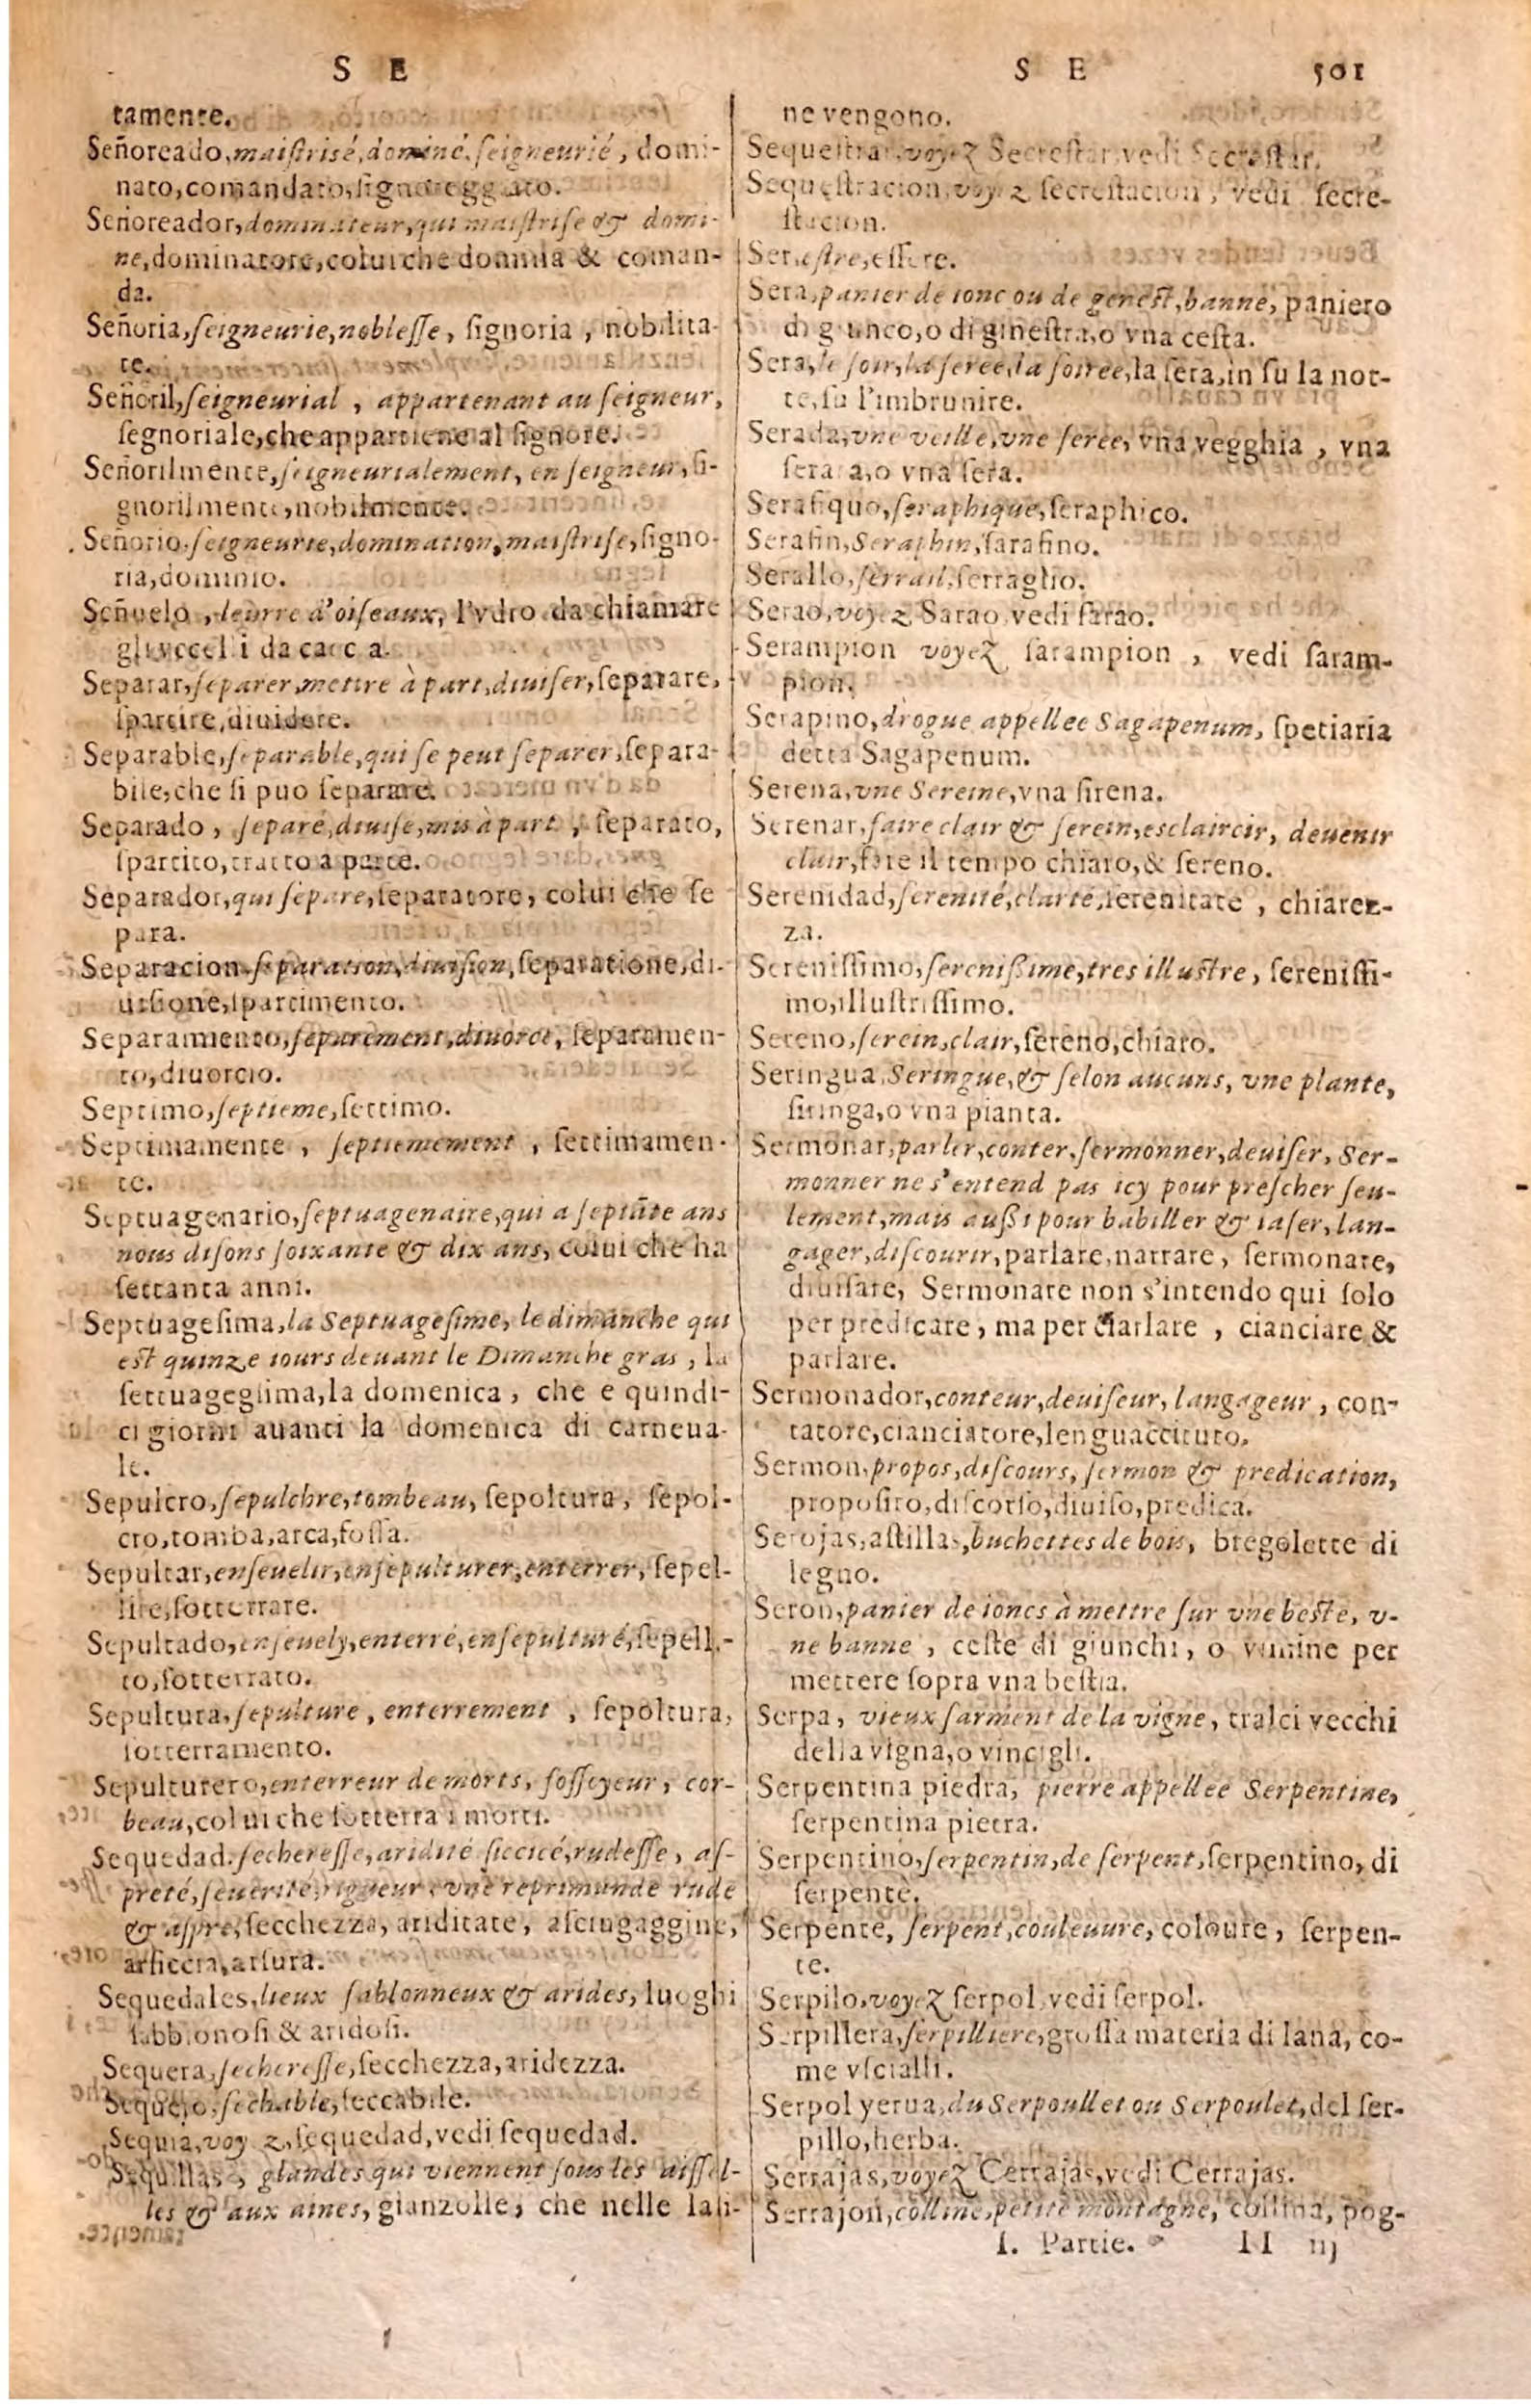 S E
tamente.
Señoreado, maiſtrisé, dominé, ſeigneurié, domi-
nato, comandato, ſignoreggiato.
Señoreador, dominateur, qui maiſtriſe & domi-
ne, dominatore, colui che domina & coman-
da.
Señoria, ſeigneurie, nobleſſe, ſignoria, nobilita-
te.
Señoril, ſeigneurial, appartenant au ſeigneur,
ſegnoriale, che appartiene al ſignore.
Señorilmente, ſeigneurialement, en ſeigneur, ſi-
gnorilmente, nobilmente.
Señorio, ſeigneurie, domination, maiſtriſe, ſigno-
ria, dominio.
Señuelo, leurre d'oiſeaux, l'vdro da chiamare
gli vccelli da cacc a.
Separar, ſeparer, mettre à part, diuiſer, ſeparare,
ſpartire, diuidere.
Separable, ſeparable, qui ſe peut ſeparer, ſepara-
bile, che ſi puo ſeparare.
Separado, ſeparé, diuiſe, mis à part, ſeparato,
ſpartito, tratto a parte.
Separador, qui ſepare, ſeparatore, colui che ſe
para.
Separacion, ſeparation, diuiſion, ſeparatione, di-
uiſione, ſpartimento.
Separamiento, ſeparement, diuorce, ſeparamen-
to, diuorcio.
Septimo, ſeptieme, ſettimo.
Septimamente, ſeptiemement, ſettimamen-
te.
Septuagenario, ſeptuagenaire, qui a ſeptãte ans
nous diſons ſoixante & dix ans, colui che ha
ſettanta anni.
Septuageſima, la Septuageſime, le dimanche qui
est quinze iours deuant le Dimanche gras, la
ſettuagegſima, la domenica, che e quindi-
ci giorni auanti la domenica di carneua-
le.
Sepulcro, ſepulchre, tombeau, ſepoltura, ſepol-
cro, tomba, arca, foſſa.
Sepultar, enſeuelir, enſepulturer, enterrer, ſepel-
lire, ſotterrare.
Sepultado, enſeuely, enterré, enſepulturé, ſepelli-
to, ſotterrato.
Sepultura, ſepulture, enterrement, ſepoltura,
ſotterramento.
Sepulturero, enterreur de morts, foſſoyeur, cor-
beau, colui che ſotterra i morti.
Sequedad, ſechereſſe, aridité ſiccité, rudeſſe, aſ-
preté, ſeuerité, rigueur, vne reprimande rude
& aſpre, ſecchezza, ariditate, aſciugaggine,
arſiccia, arſura.
Sequedales, lieux ſablonneux & arides, luoghi
ſabbionoſi & aridoſi.
Sequera, ſechereſſe, ſecchezza, aridezza.
Sequejo, ſechable, ſeccabile.
Sequia, voy z, ſequedad, vedi ſequedad.
Sequillas, glandes qui viennent ſous les aiſſel-
les & aux aines, gianzolle, che nelle laſi-
S E 501
ne vengono.
Sequeſtrar, voyez Secreſtar, vedi Secreſtar.
Sequeſtracion, voyez ſecreſtacion, vedi ſecre-
ſtacion.
Ser, eſtre, eſſere.
Sera, panier de ionc ou de genest, banne, paniero
di giunco, o di gineſtra, o vna ceſta.
Sera, le ſoir, la ſeree, la ſoiree, la ſera, in ſu la not-
te, ſu l'imbrunire.
Serada, vne veille, vne ſeree, vna vegghia, vna
ſerata, o vna ſera.
Serafiquo, ſeraphique, ſeraphico.
Serafin, Seraphin, ſarafino.
Serallo, ſerrail, ſerraglio.
Serao, voyez Sarao, vedi ſarao.
Serampion voyez ſarampion, vedi ſaram-
pion.
Serapino, drogue appellee Sagapenum, ſpetiaria
detta Sagapenum.
Serena, vne Sereine, vna ſirena.
Serenar, faire clair & ſerein, esclaircir, deuenir
clair, fare il tempo chiaro, & ſereno.
Serenidad, ſerenité, clarté, ſerenitate, chiarez-
za.
Sereniſſimo, ſerenißime, tres illustre, ſereniſſi-
mo, illuſtriſſimo.
Sereno, ſerein, clair, ſereno, chiaro.
Seringua, Seringue, & ſelon aucuns, vne plante,
ſiringa, o vna pianta.
Sermonar, parler, conter, ſermonner, deuiſer, Ser-
monner ne s'entend pas icy pour preſcher ſeu-
lement, mais außi pour babiller & iaſer, lan-
gager, diſcourir, parlare, narrare, ſermonare,
diuiſare, Sermonare non s'intendo qui ſolo
per predicare, ma per ciarlare, cianciare &
parlare.
Sermonador, conteur, deuiſeur, langageur, con-
tatore, cianciatore, lenguaccituto.
Sermon, propos, diſcours, ſermon & predication,
propoſito, diſcorſo, diuiſo, predica.
Serojas, aſtillas, buchettes de bois, bregolette di
legno.
Seron, panier de ioncs à mettre ſur vne beste, v-
ne banne, ceſte di giunchi, o vimine per
mettere ſopra vna beſtia.
Serpa, vieux ſarment de la vigne, tralci vecchi
della vigna, o vincigli.
Serpentina piedra, pierre appellee Serpentine,
ſerpentina pietra.
Serpentino, ſerpentin, de ſerpent, ſerpentino, di
ſerpente.
Serpente, ſerpent, couleuure, coloure, ſerpen-
te.
Serpilo, voyez ſerpol, vedi ſerpol.
Serpillera, ſerpilliere, groſſa materia di lana, co-
me vſcialli.
Serpol yerua, du Serpoullet ou Serpoulet, del ſer-
pillo, herba.
Serrajas, voyez Cerrajas, vedi Cerrajas.
Serrajon, colline, petite montagne, collina, pog-
I. Partie. II iij